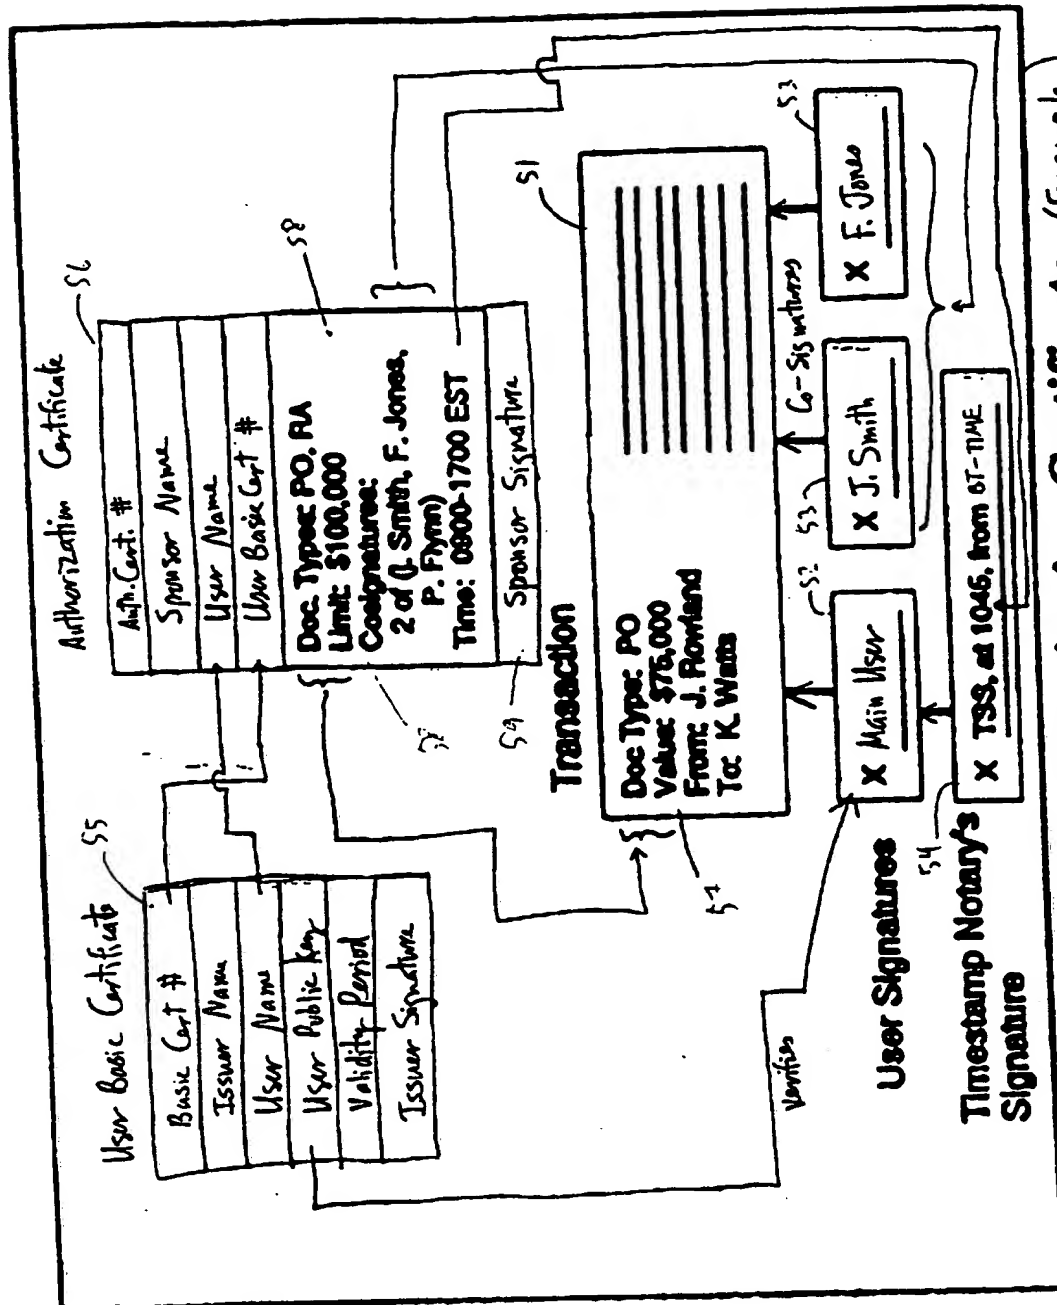 User Basic Certificate
55
Basic Cert #
Issuer Name
User Name
User Public Key
Validity Period
Issuer Signature
Authorization Certificate
56
Auth. Cert. #
Sponsor Name
User Name
User Basic Cert #
Doc. Types: PO, RA
Limit: $100,000
Cosignatures:
2 of (J. Smith, F. Jones,
P. Flynn)
Time: 0900-1700 EST
58
59
Sponsor Signature
Transaction
51
Doc Type: PO
Value: $75,000
From: J. Rowland
To: K. Watts
57
Verifies
Co-Signatures
User Signatures
52
X Main User
53
X J. Smith
53
X F. Jones
Timestamp Notary's
Signature
54
X TSS, at 1045, from BT-TIME